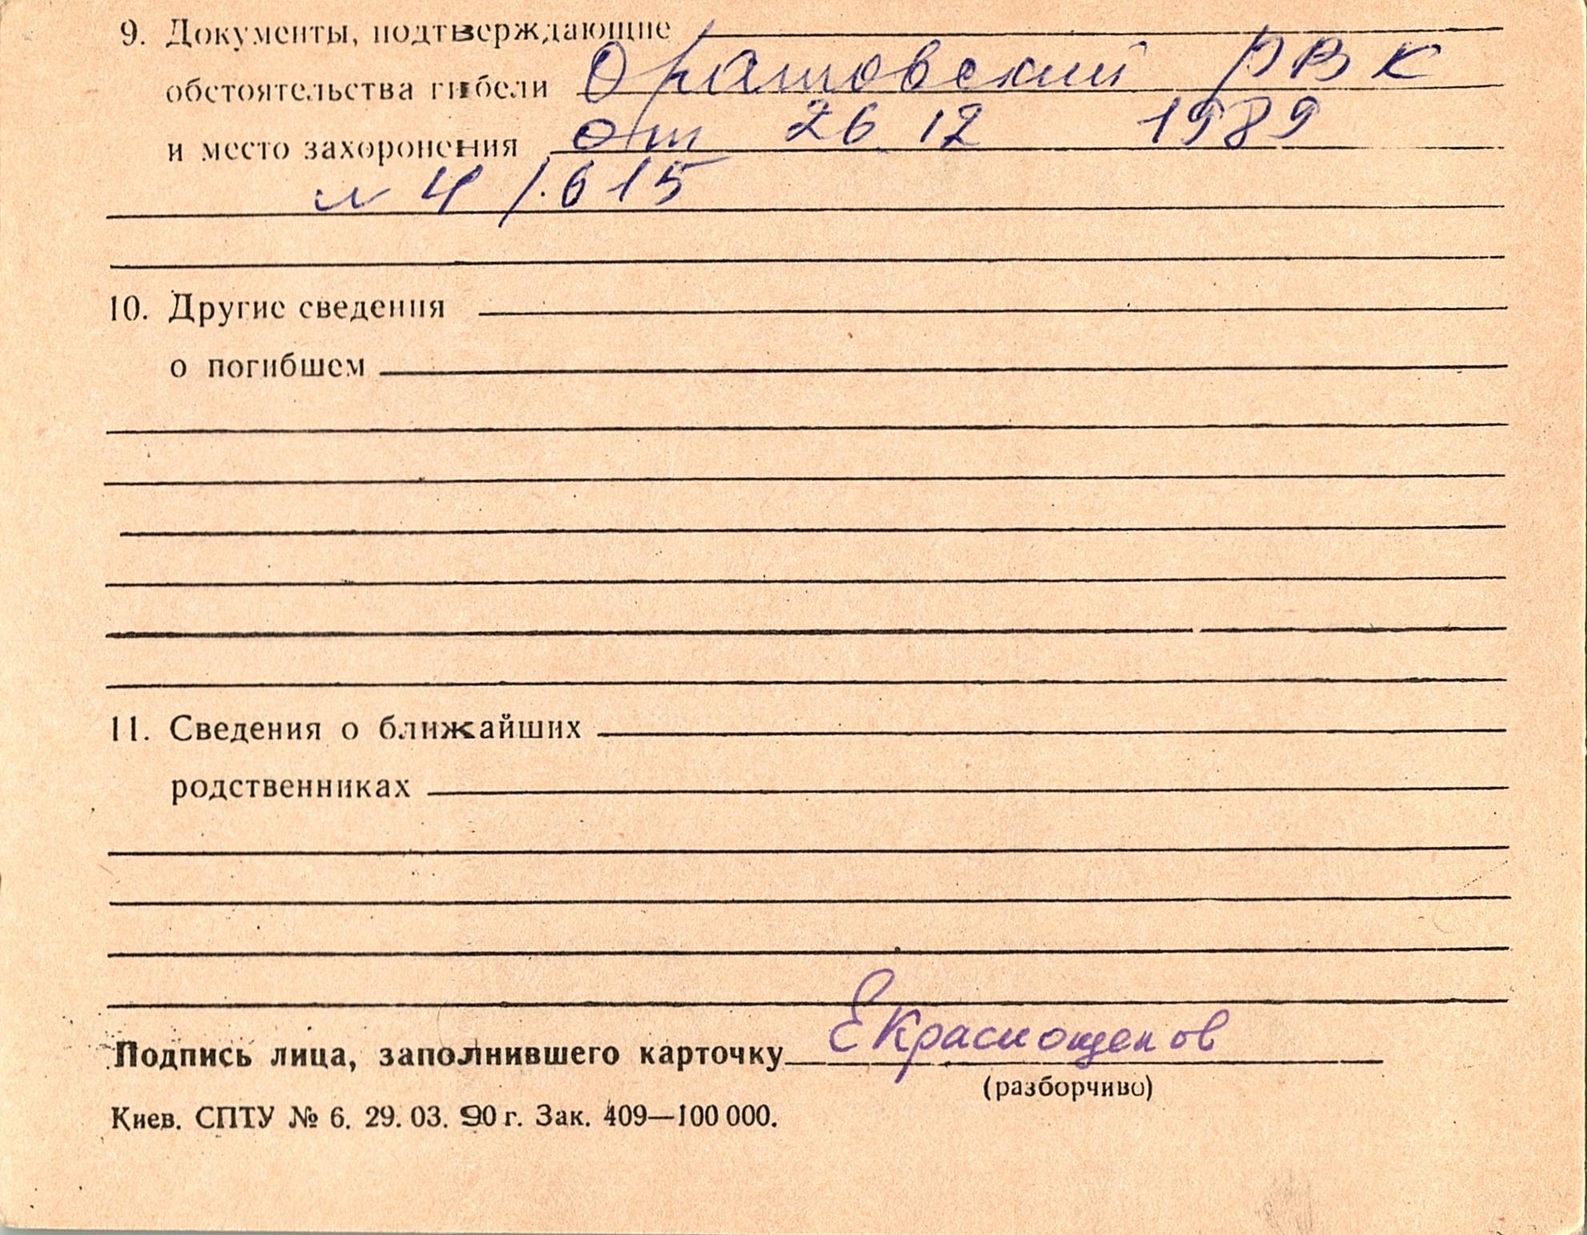 9. Документы, подтверждающие
обстоятельства гибели Оратовский РВК
и место захоронения от 26 12 1989
№ 4/.615
10. Другие сведения
о погибшем
11. Сведения о ближайших
родственниках
Подпись лица, заполнившего карточку Е Краснощеков
(разборчиво)
Киев. СПТУ № 6. 29. 03. 90 г. Зак. 409—100 000.